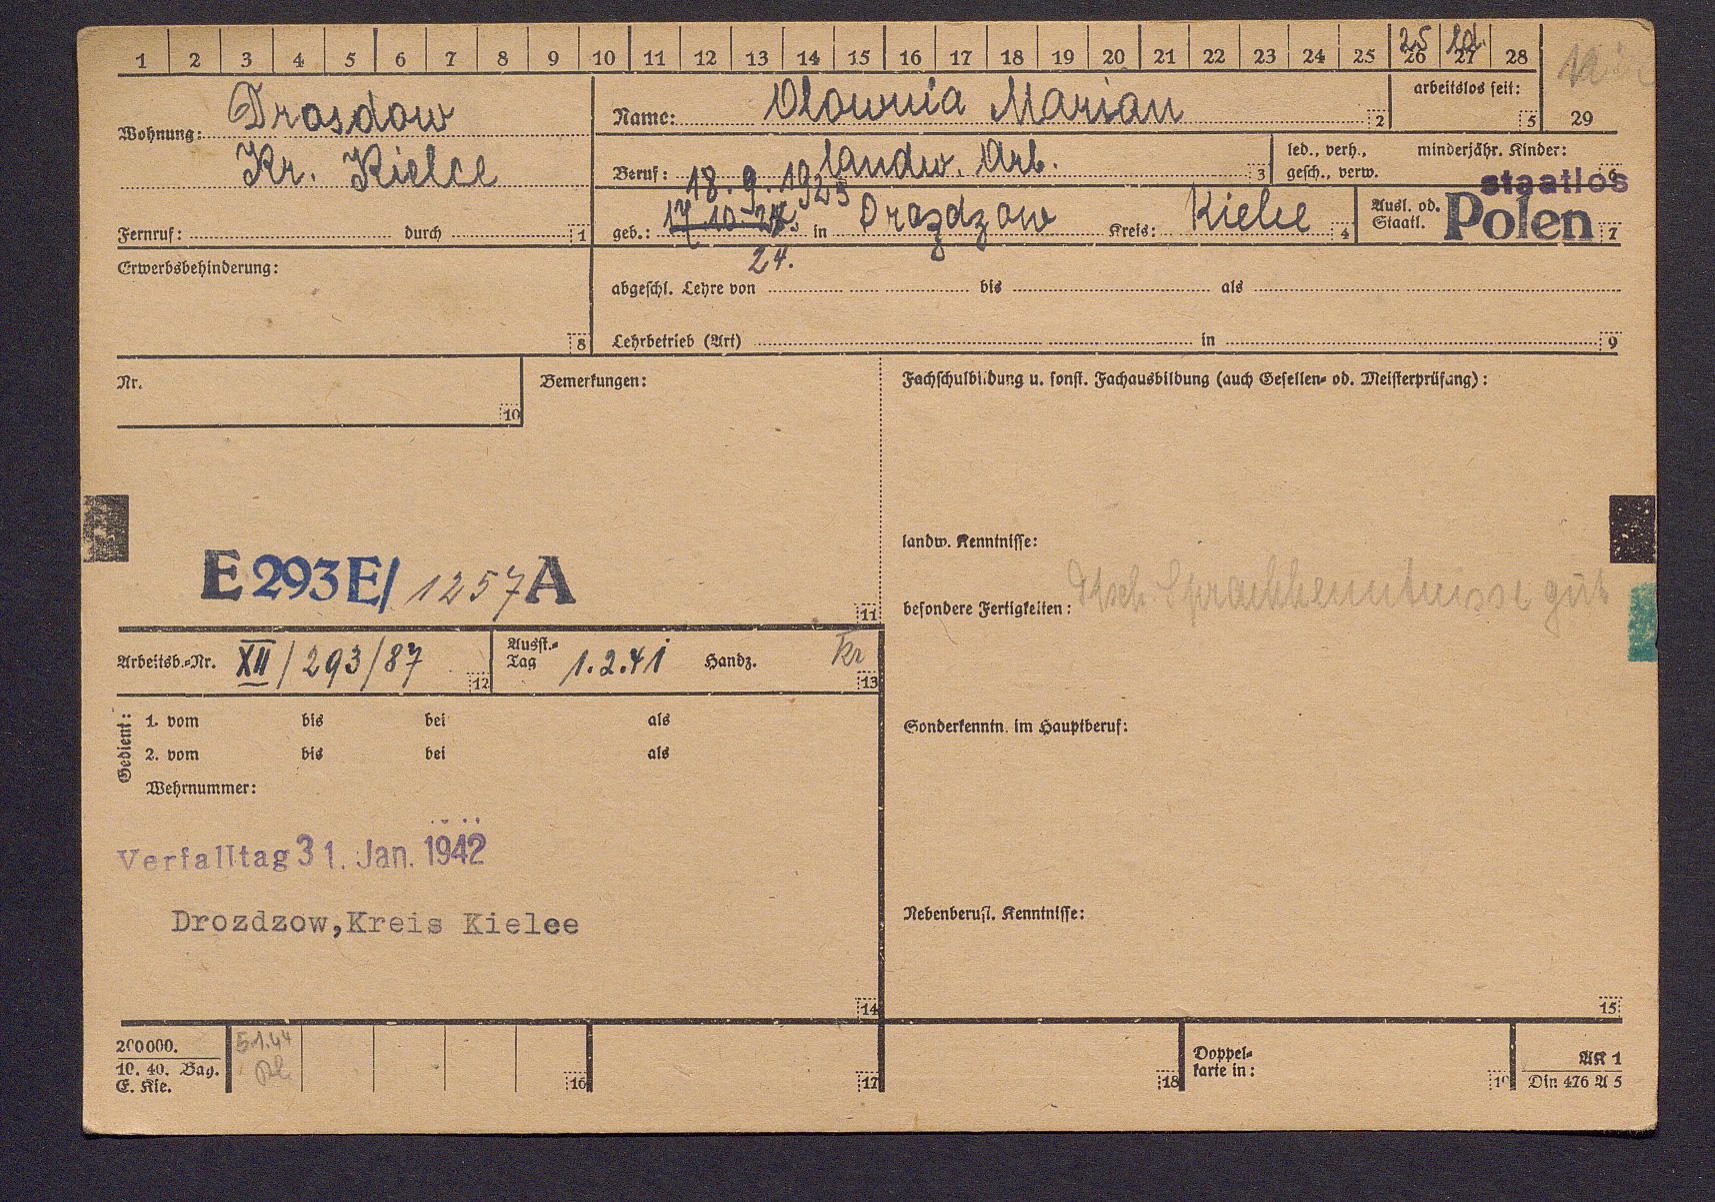 1 2 3 4 5 6 7 8 9 10 11 12 13 14 15 16 17 18 19 20 21 22 23 24 25 26 27 28
25
Wohnung: Drosdow
Kr. Kielce
Fernruf: durch 1
Name: Olownia Marian 2
arbeitslos seit: 5
29
Beruf: landw. Arb. 3
led., verh.,
gesch., verw.
minderjähr. Kinder:
staatlos
18.9.1925
geb.: 17.10. in Drozdzow Kreis: Kielce 4
24.
Ausl. od.
Staatl. Polen 7
Erwerbsbehinderung: 8
abgeschl. Lehre von bis als
Lehrbetrieb (Art) in 9
Nr. 10
Bemerkungen:
E 293 E/ 1257 A
11
Fachschulbildung u. sonst. Fachausbildung (auch Gesellen- od. Meisterprüfung):
landw. Kenntnisse:
besondere Fertigkeiten: Dtsch Sprachkenntnisse gut
Sonderkenntn. im Hauptberuf:
Nebenberufl. Kenntnisse:
15
Arbeitsb.-Nr. XII/293/87 12
Ausst.-
Tag 1.2.41 Handz. Kr 13
Gedient:
1. vom bis bei als
2. vom bis bei als
Wehrnummer:
Verfalltag 31. Jan. 1942
Drozdzow,Kreis Kielee
14
200000.
10. 40. Bag.
E. Kie.
5.1.44
16
17
18
Doppel-
karte in: 19
AK 1
Din 476 A 5